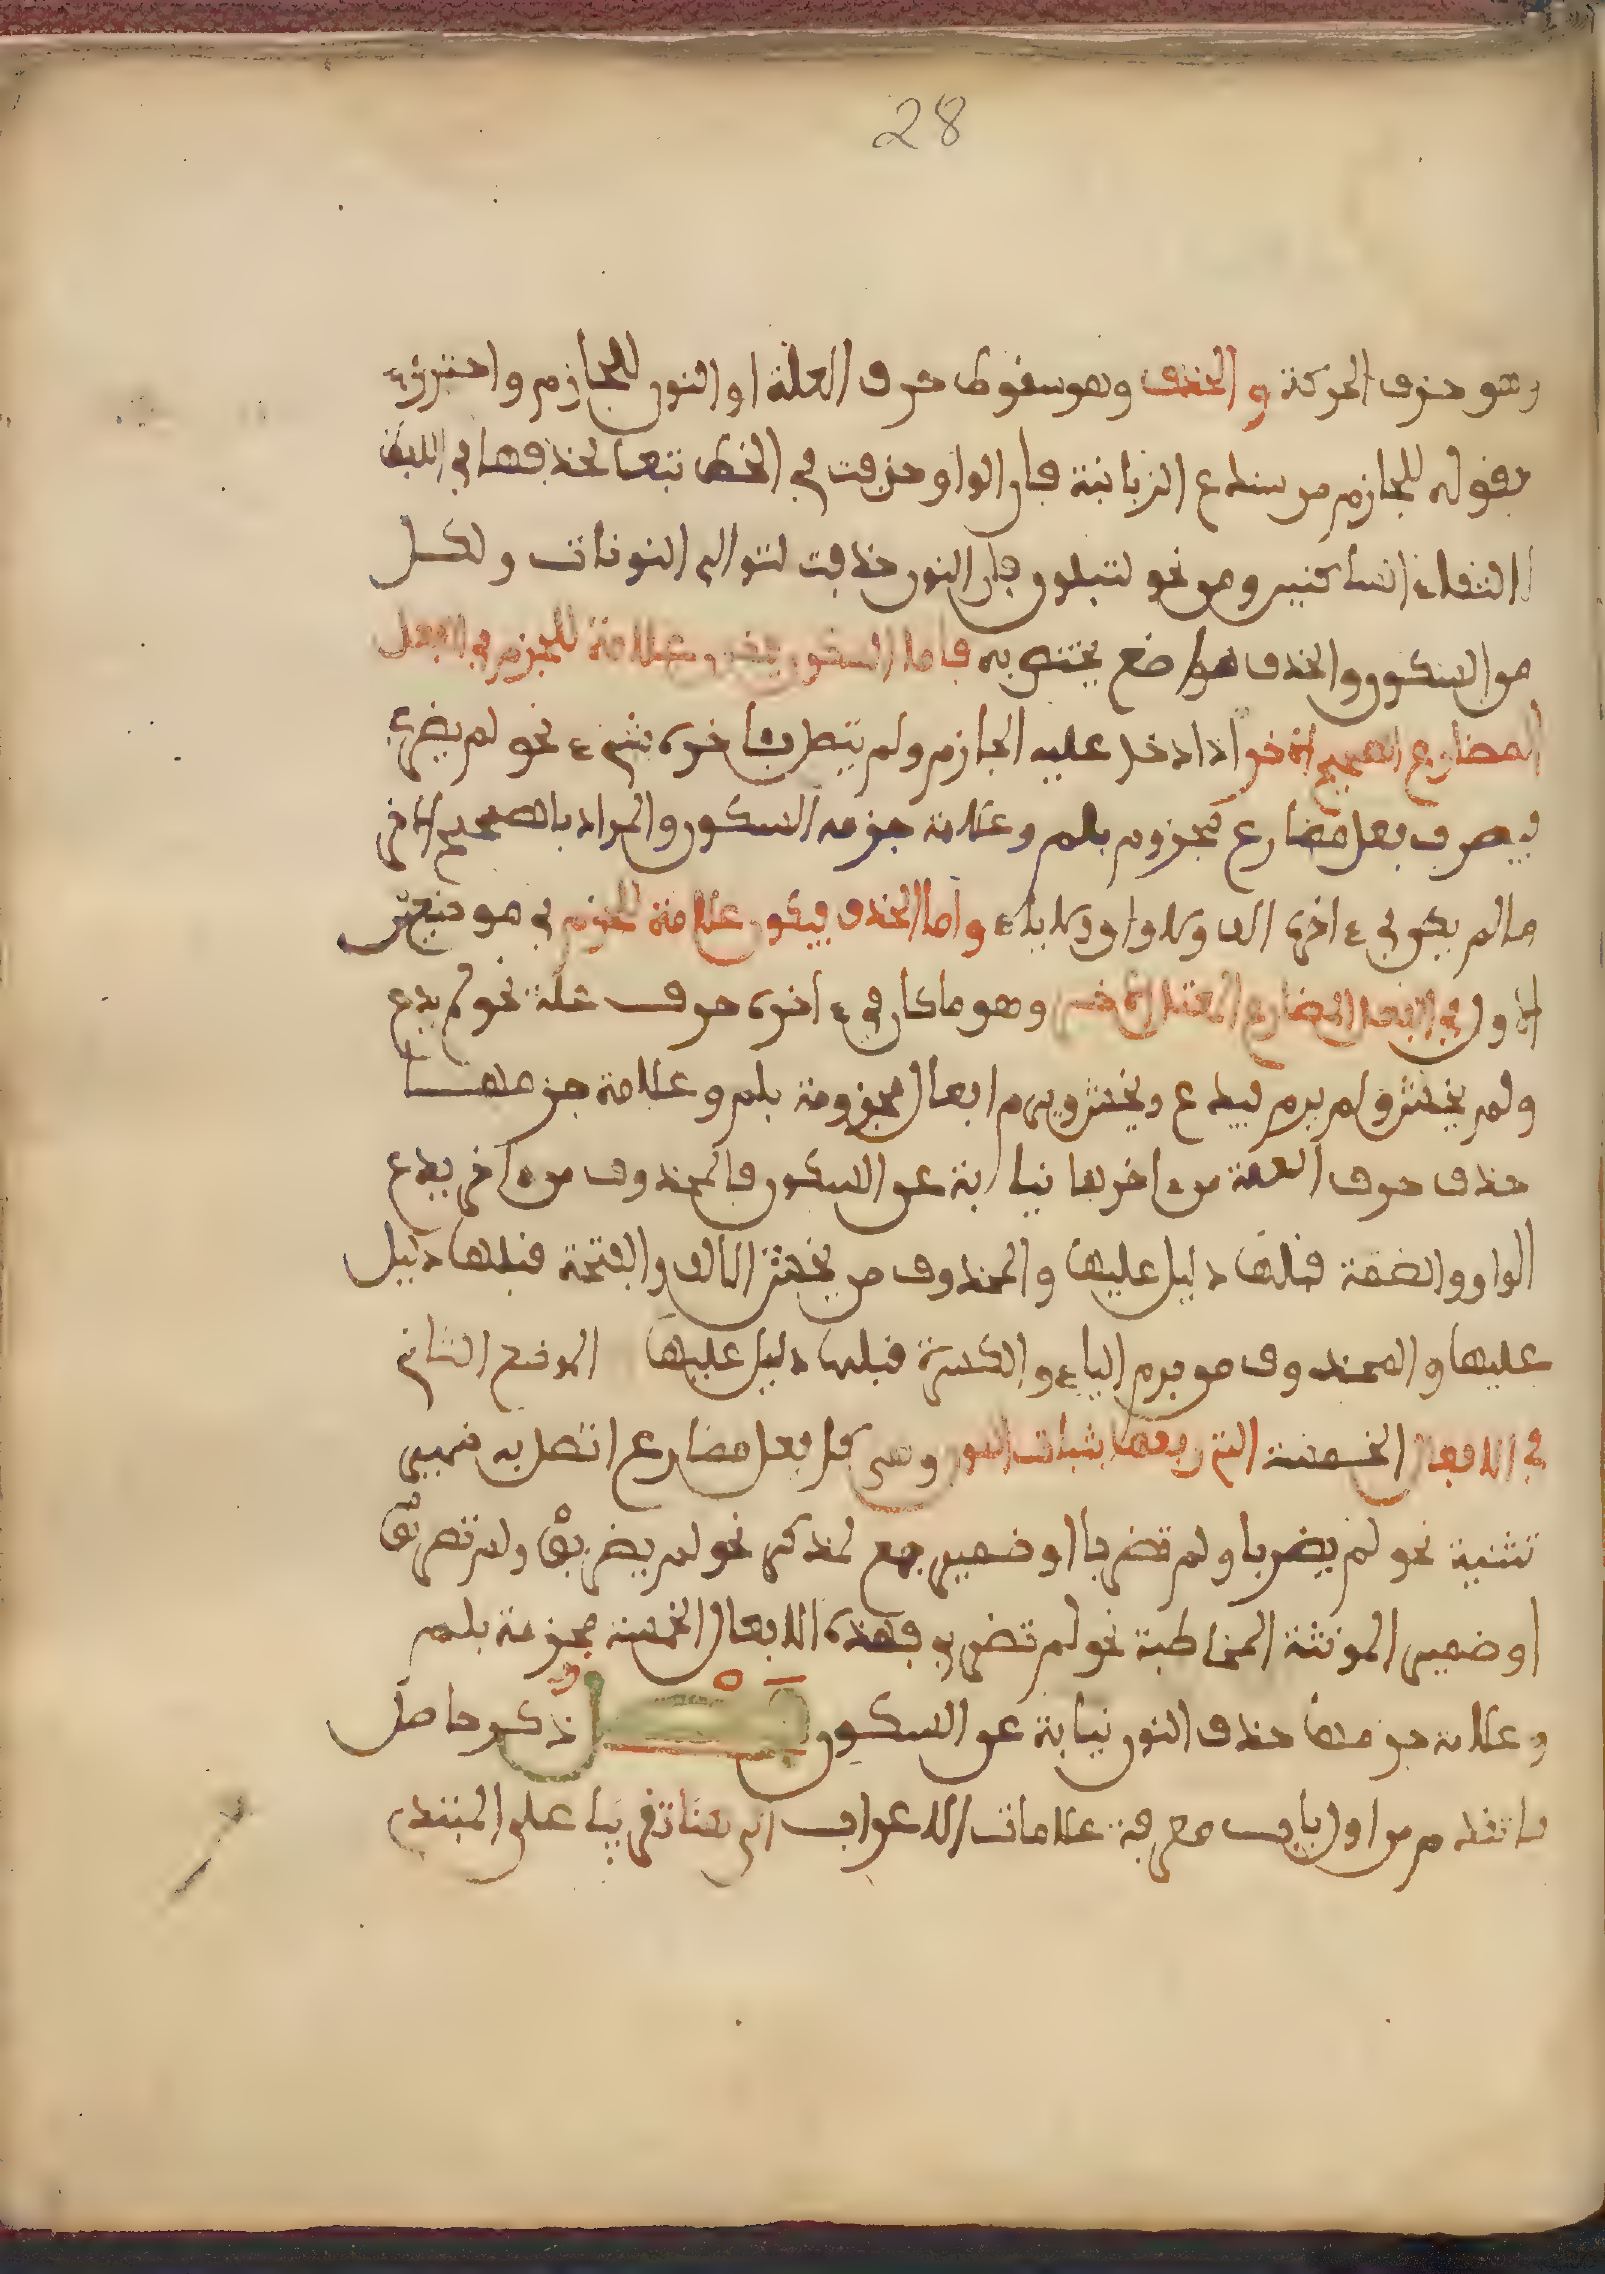 28
وهو حذف الحركة والحذف وهو سقوط حرف العلة او النون للجازم واحترز
بقوله للجازم من سندع الزبانية فان الواو حذفت في الخط تبعا لحذفها في اللفظ
لالتقاء الساكنين ومن نحو لتبلون فان النون حذفت لتوالي النونات ولكل
من السكون والحذف مواضع يختص به فاما السكون فيكون علامة للجزم في الفعل
المضارع الصحيح الاخر اذا دخل عليه الجازم ولم يتصل بآخره شيء نحو لم يضرب
فيضرب فعل مضارع مجزوم بلم وعلامة جزمه السكون والمراد بالصحيح الاخر
ما لم يكن في ءاخره الف ولا واو ولا ياء واما الحذف فيكون علامة للجزم في موضعين
الاول في الفعل المضارع المعتل الاخر وهو ما كان في ءاخره حرف علة نحو لم يدع
ولم يخش ولم يرم فيدع ويخش ويرم افعال مجزومة بلم وعلامة جزمها
حذف حرف العلة من ءاخرها نيابة عن السكون فالمحذوف من ءاخر يدع
الواو والضمة قبلها دليل عليها والمحذوف من يخش الالف والفتحة قبلها دليل
عليها والمحذوف من يرم الياء والكسرة قبلها دليل عليها الموضع الثاني
في الافعال الخمسة التي رفعها بثبات النون وهي كل فعل مضارع اتصل به ضمير
تثنية نحو لم يضربا ولم تضربا او ضمير جمع لمذكر نحو لم يضربوا ولم تضربوا
او ضمير المونثة المخاطبة نحو لم تضربي فهذه الافعال الخمسة مجزومة بلم
وعلامة جزمها حذف النون نيابة عن السكون فصل في ذكر حاصل
ما تقدم من اول باب معرفة علامات الاعراب الى هنا تقريبا على المبتدي